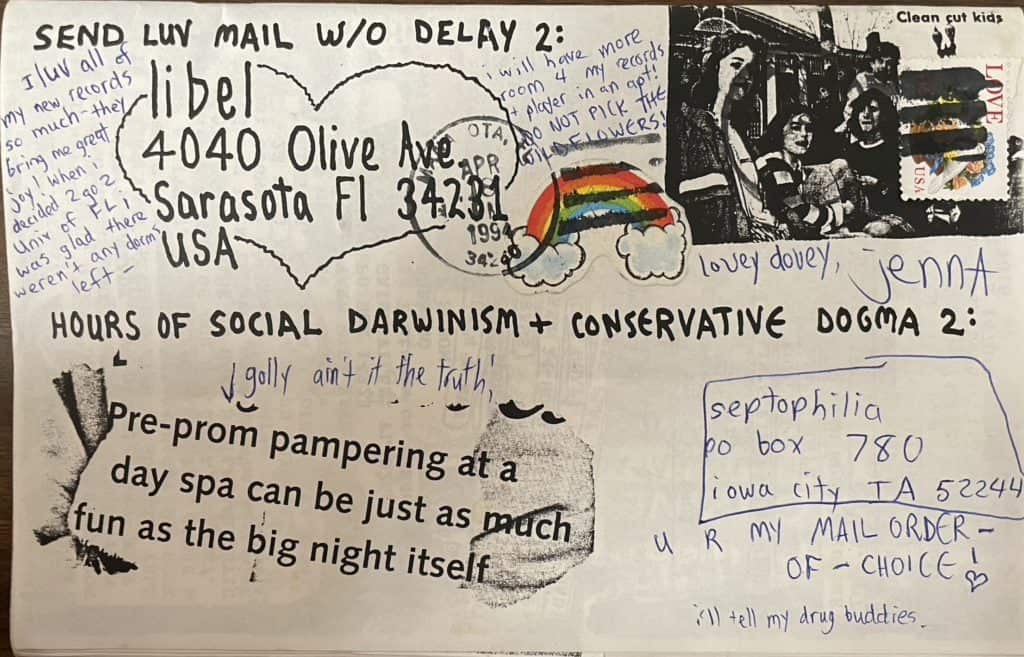 SEND LUV MAIL W/O DELAY 2:
I luv all of
my new records
so much - they
bring me great
joy! when i
decided 2 go 2
Univ of FL i
was glad there
weren't any dorms
left -
libel
4040 Olive Ave.
Sarasota Fl 34231
USA
i will have more
room 4 my records
+ player in an apt!
DO NOT PICK THE
WILDFLOWERS!
OTA,
APR
1994
Clean cut kids
LOVE
USA
lovey dovey, jennA
HOURS OF SOCIAL DARWINISM + CONSERVATIVE DOGMA 2:
golly ain't it the truth!
Pre-prom pampering at a
day spa can be just as much
fun as the big night itself
septophilia
po box 780
iowa city IA 52244
u R MY MAIL ORDER-
OF-CHOICE!
i'll tell my drug buddies.